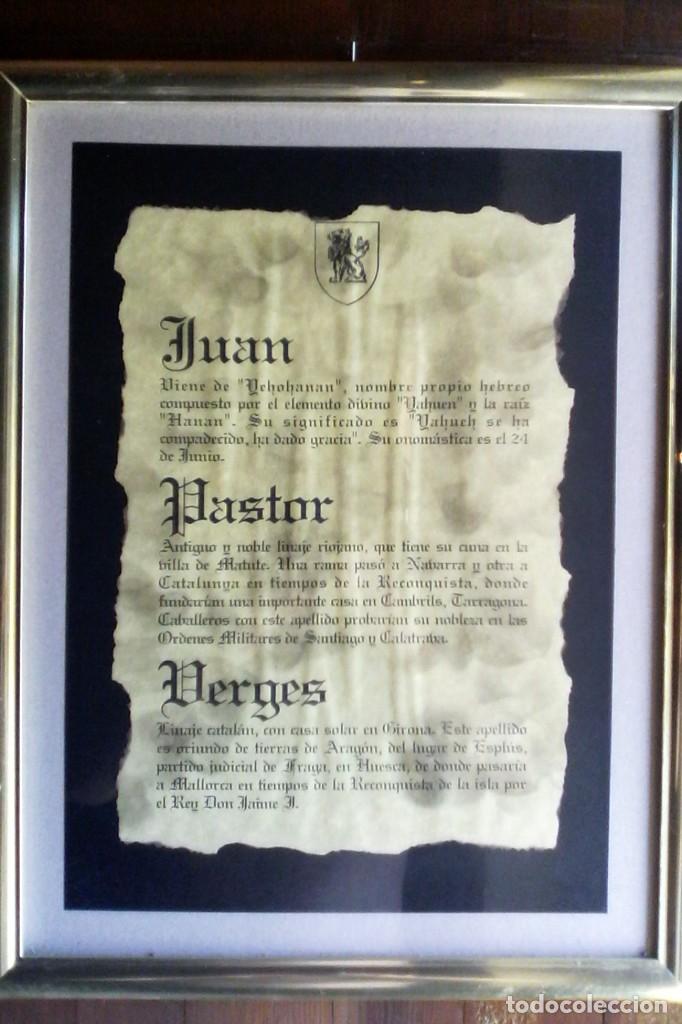 Juan
Viene de "Yehohanan", nombre propio hebreo
compuesto por el elemento divino "Yahuen" y la raíz
"Hanan". Su significado es "Yahueh se ha
compadecido, ha dado gracia". Su onomástica es el 24
de Junio.
Pastor
Antiguo y noble linaje riojano, que tiene su cuna en la
villa de Matute. Una rama pasó a Navarra y otra a
Catalunya en tiempos de la Reconquista, donde
fundarían una importante casa en Cambrils, Tarragona.
Caballeros con este apellido probarían su nobleza en las
Ordenes Militares de Santiago y Calatrava.
Verges
Linaje catalán, con casa solar en Girona. Este apellido
es oriundo de tierras de Aragón, del lugar de Esplús,
partido judicial de Fraga, en Huesca, de donde pasaría
a Mallorca en tiempos de la Reconquista de la isla por
el Rey Don Jaime I.
todocoleccion